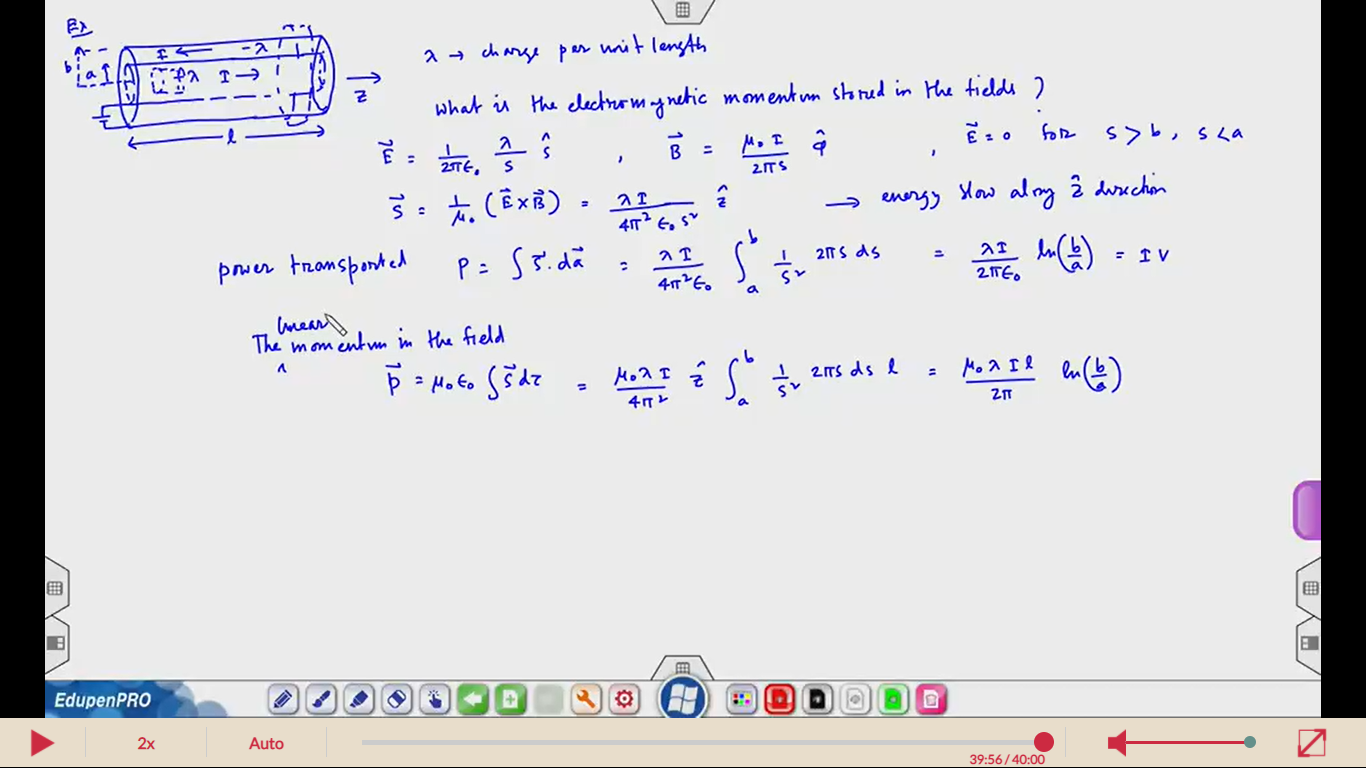 Ex
I ← -λ
b a +λ I →
z
l
λ → charge per unit length
What is the electromagnetic momentum stored in the fields ?
E⃗ = 1/2πϵ₀ λ/s ŝ , B⃗ = μ₀ I/2πs φ̂ , E⃗ = 0 for s > b , s < a
S⃗ = 1/μ₀ (E⃗ × B⃗) = λ I/4π² ϵ₀ s² ẑ → energy flow along ẑ direction
power transported P = ∫ S⃗ . da⃗ = λ I/4π² ϵ₀ ∫ₐᵇ 1/s² 2πs ds = λI/2πϵ₀ ln(b/a) = I V
The linear momentum in the field
p⃗ = μ₀ ϵ₀ ∫ S⃗ dτ = μ₀ λ I/4π² ẑ ∫ₐᵇ 1/s² 2πs ds l = μ₀ λ I l/2π ln(b/a)
EdupenPRO
2x Auto 39:56 / 40:00